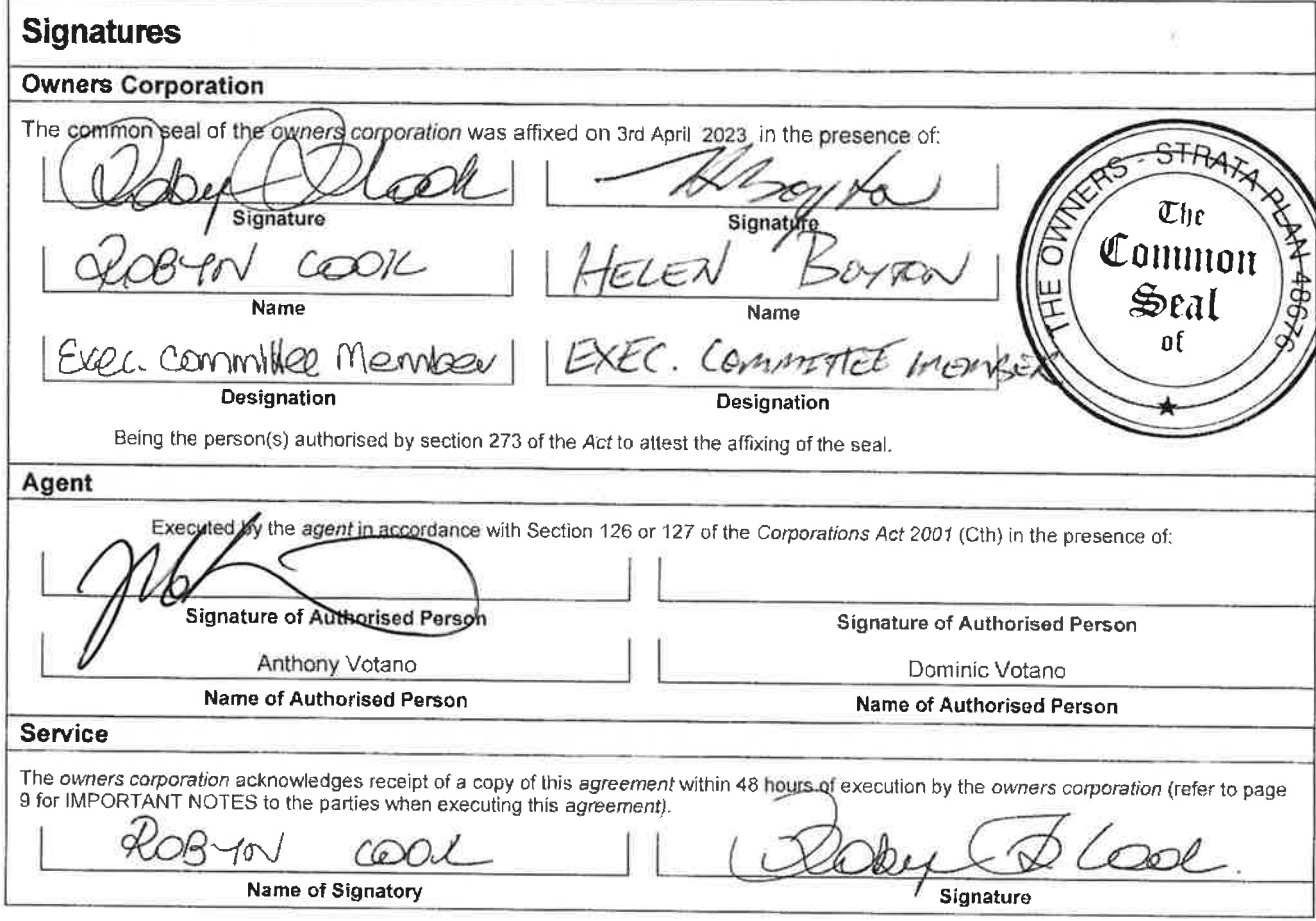 Signatures
Owners Corporation
The common seal of the owners corporation was affixed on 3rd April 2023 in the presence of:
Signature
Signature
ROBYN COOK
HELEN BOYTON
Name
Name
Exec. Committee Member
EXEC. COMMITTEE MEMBER
Designation
Designation
THE OWNERS - STRATA PLAN 48676
The
Common
Seal
of
Being the person(s) authorised by section 273 of the Act to attest the affixing of the seal.
Agent
Executed by the agent in accordance with Section 126 or 127 of the Corporations Act 2001 (Cth) in the presence of:
Signature of Authorised Person
Signature of Authorised Person
Anthony Votano
Dominic Votano
Name of Authorised Person
Name of Authorised Person
Service
The owners corporation acknowledges receipt of a copy of this agreement within 48 hours of execution by the owners corporation (refer to page
9 for IMPORTANT NOTES to the parties when executing this agreement).
ROBYN COOK
Name of Signatory
Signature